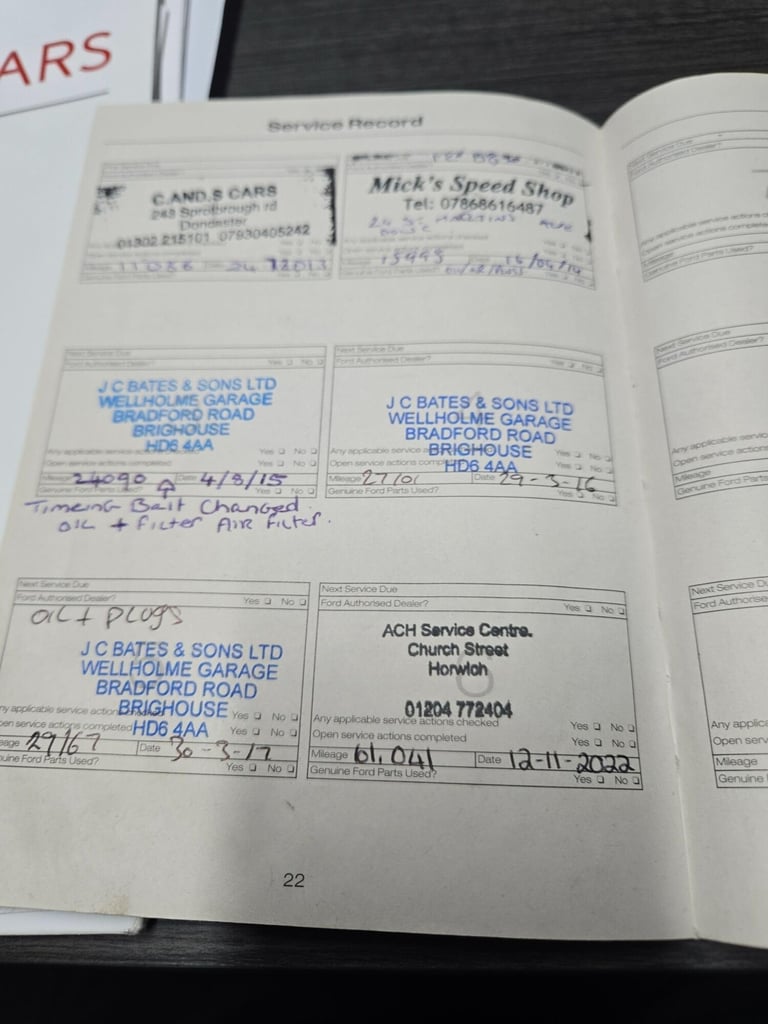 ARS
Service Record
C.AND.S CARS
243 Sprotbrough rd
Doncaster
01302 215101 07930405242
Mick's Speed Shop
Tel: 07868616487
15995
Next Service Due
Ford Authorised Dealer? Yes No
J C BATES & SONS LTD
WELLHOLME GARAGE
BRADFORD ROAD
BRIGHOUSE
HD6 4AA
Any applicable service Yes No
Open service actions completed Yes No
Mileage 24090 Date 4/8/15
Genuine Ford Parts Used? Yes No
Timeing Balt Changed.
OIL + Filter AIR Filter.
Next Service Due
Ford Authorised Dealer? Yes No
J C BATES & SONS LTD
WELLHOLME GARAGE
BRADFORD ROAD
BRIGHOUSE
HD6 4AA
Any applicable service Yes No
Open service actions Yes No
Mileage 27101 Date 29-3-16
Genuine Ford Parts Used? Yes No
Next Service Due
Ford Authorised Dealer? Yes No
OIL + PLUGS
J C BATES & SONS LTD
WELLHOLME GARAGE
BRADFORD ROAD
BRIGHOUSE
HD6 4AA
ny applicable service action Yes No
pen service actions completed Yes No
eage 29167 Date 30-3-17
nuine Ford Parts Used? Yes No
Next Service Due
Ford Authorised Dealer? Yes No
ACH Service Centre.
Church Street
Horwich
01204 772404
Any applicable service actions checked Yes No
Open service actions completed Yes No
Mileage 61,041 Date 12-11-2022
Genuine Ford Parts Used? Yes No
22
Next Service Due
Ford Authorised Dealer?
Any applicable service actions
Open service actions complete
Mileage
Genuine Ford Parts Used?
Next Service Due
Ford Authorised Dealer?
Any applicable servic
Open service actions
Mileage
Genuine Ford Parts
Next Service D
Ford Authorise
Any applic
Open serv
Mileage
Genuine